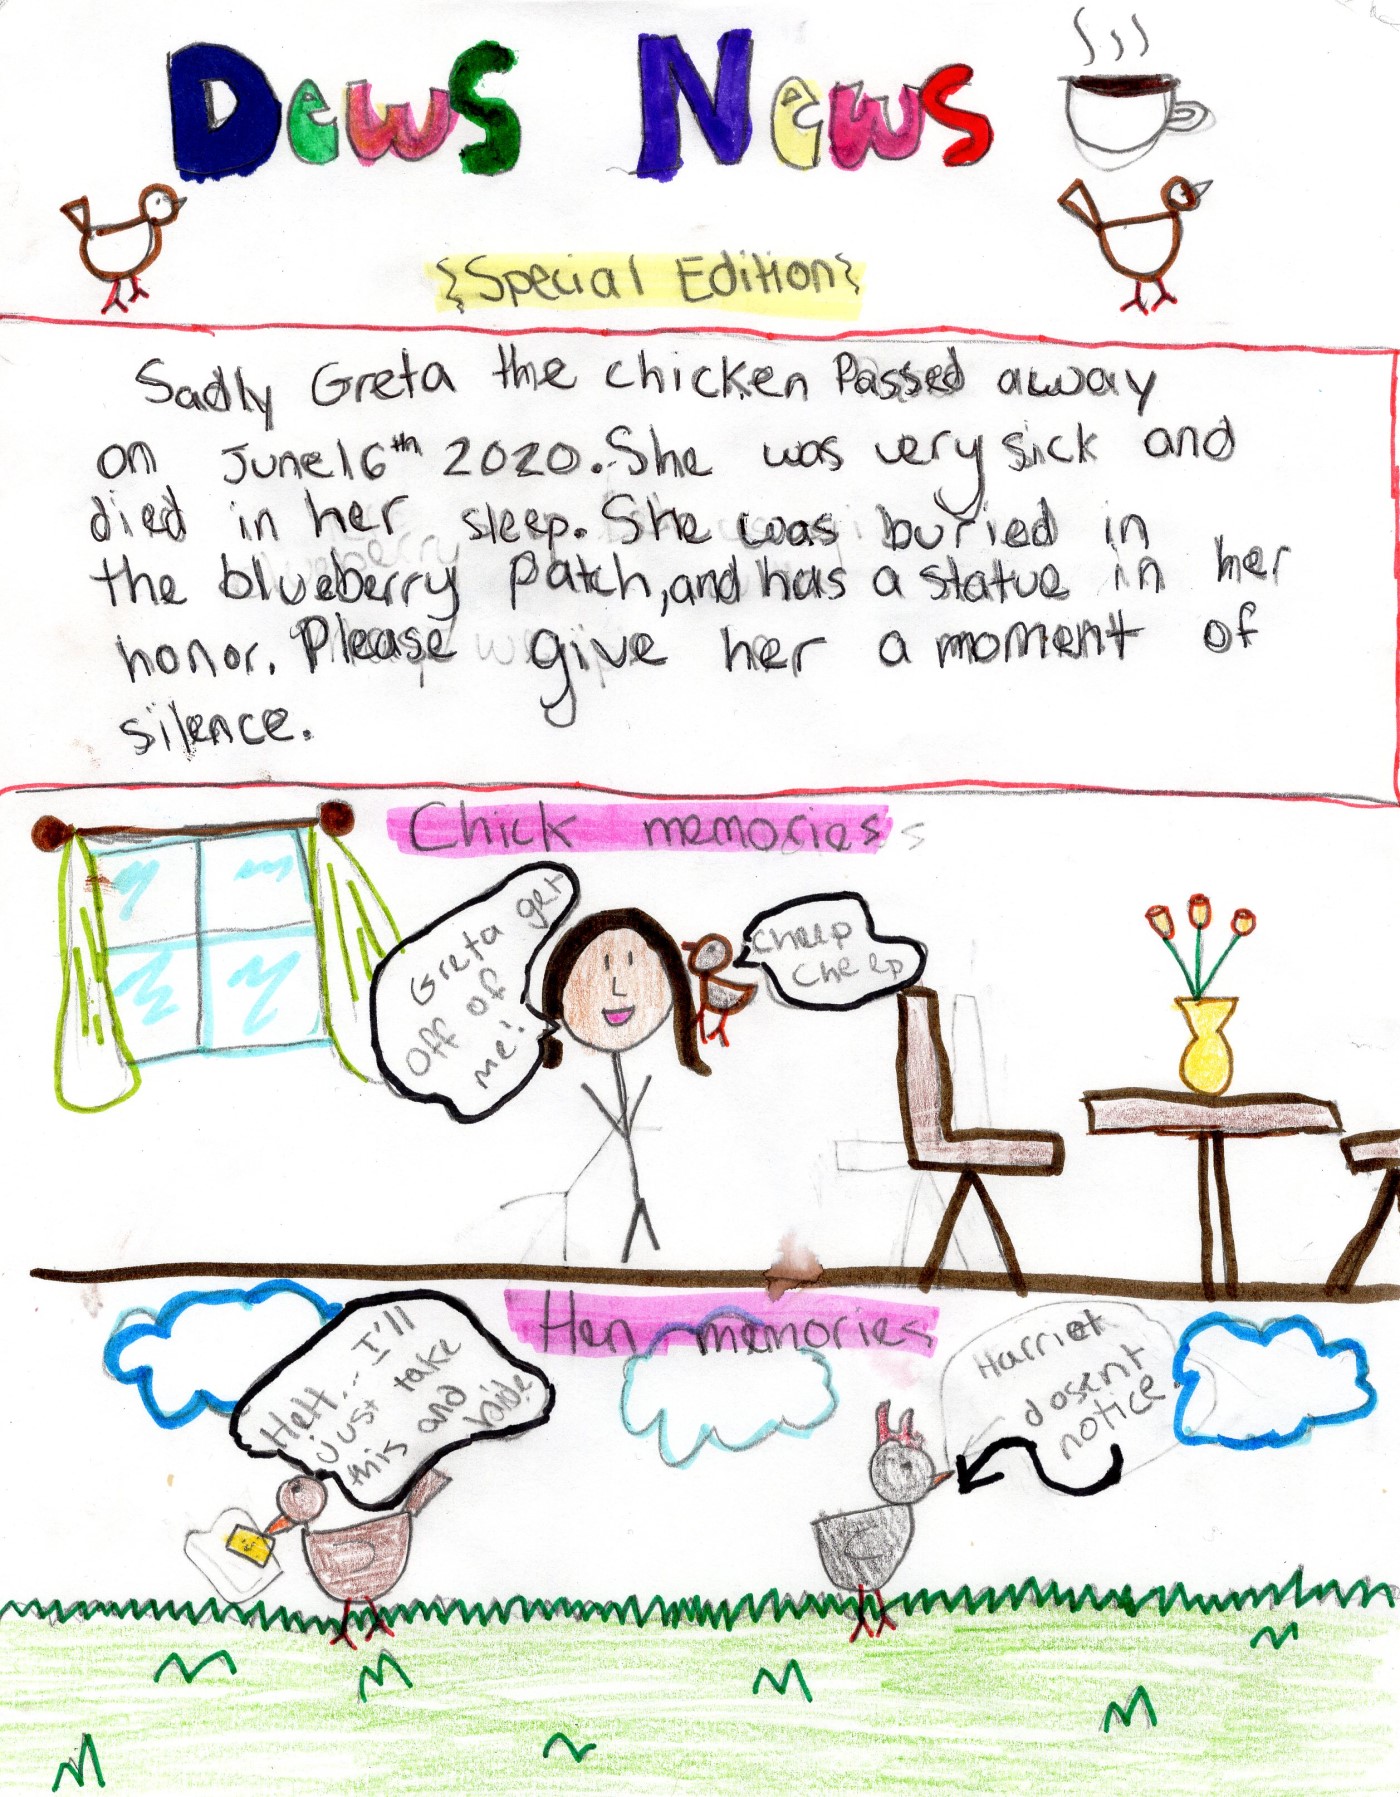 Dews News
{Special Edition}
Sadly Greta the chicken Passed away
on June 16th 2020. She was very sick and
died in her sleep. She was buried in
the blueberry Patch, and has a statue in her
honor. Please give her a moment of
silence.
Chick memories
Greta get
off of
me!
cheep
cheep
Hen memories
Heh... I'll
just take
this and
Harriet
dosent
notice.